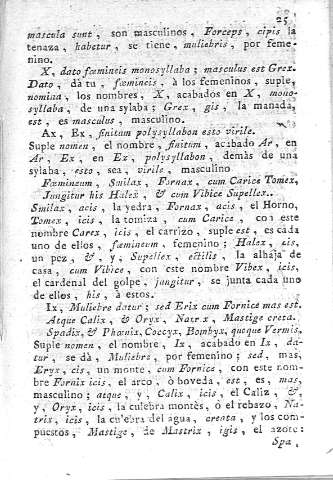 25
mascula sunt, son masculinos, Forceps, cipis la
tenaza, habetur, se tiene, muliebris, por feme-
nino.
X, dato fœmineis monosyllaba; masculus est Grex.
Dato, dà tu, fœmineis, à los femeninos, suple,
nomina, los nombres, X, acabados en X, mono-
syllaba, de una sylaba; Grex, gis, la manada,
est, es masculus, masculino.
Ax, Ex, finitum polysyllabon esto virile.
Suple nomen, el nombre, finitum, acabado Ar, en
Ar, Ex, en Ex, polysyllabon, demàs de una
sylaba, esto, sea, virile, masculino
Fœmineum, Smilax, Fornax, cum Carice Tomex,
Jungitur his Halex, & cum Vibice Supellex.
Smilax, acis, la yedra, Fornax, acis, el Horno,
Tomex, icis, la tomiza, cum Carice, con este
nombre Carex, icis, el carrizo, suple est, es cada
uno de ellos, fœmineum, femenino; Halex, cis,
un pez, &, y, Supellex, ectilis, la alhaja de
casa, cum Vibice, con este nombre Vibex, icis,
el cardenal del golpe, jungitur, se junta cada uno
de ellos, his, à estos.
Ix, Muliebre datur; sed Erix cum Fornice mas est.
Atque Calix, & Oryx, Natrix, Mastige creta.
Spadix, & Phœnix, Coccyx, Bombyx, queque Vermis.
Suple nomen, el nombre, Ix, acabado en Ix, da-
tur, se dà, Muliebre, por femenino; sed, mas,
Eryx, cis, un monte, cum Fornice, con este nom-
bre Fornix icis, el arco, ò boveda, est, es, mas,
masculino; atque, y, Calix, icis, el Caliz, &,
y, Oryx, icis, la culebra montès, ò el rebazo, Na-
trix, icis, la culebra del agua, creata, y los com-
puestos, Mastige, de Mastrix, igis, el azote:
Spa,